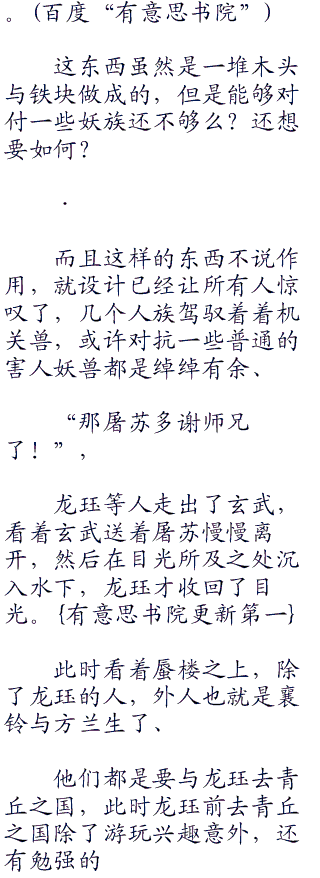 。(百度“有意思书院”)
这东西虽然是一堆木头
与铁块做成的，但是能够对
付一些妖族还不够么？还想
要如何？
.
而且这样的东西不说作
用，就设计已经让所有人惊
叹了，几个人族驾驭着着机
关兽，或许对抗一些普通的
害人妖兽都是绰绰有余、
“那屠苏多谢师兄
了！”，
龙珏等人走出了玄武，
看着玄武送着屠苏慢慢离
开，然后在目光所及之处沉
入水下，龙珏才收回了目
光。{有意思书院更新第一}
此时看着蜃楼之上，除
了龙珏的人，外人也就是襄
铃与方兰生了、
他们都是要与龙珏去青
丘之国，此时龙珏前去青丘
之国除了游玩兴趣意外，还
有勉强的